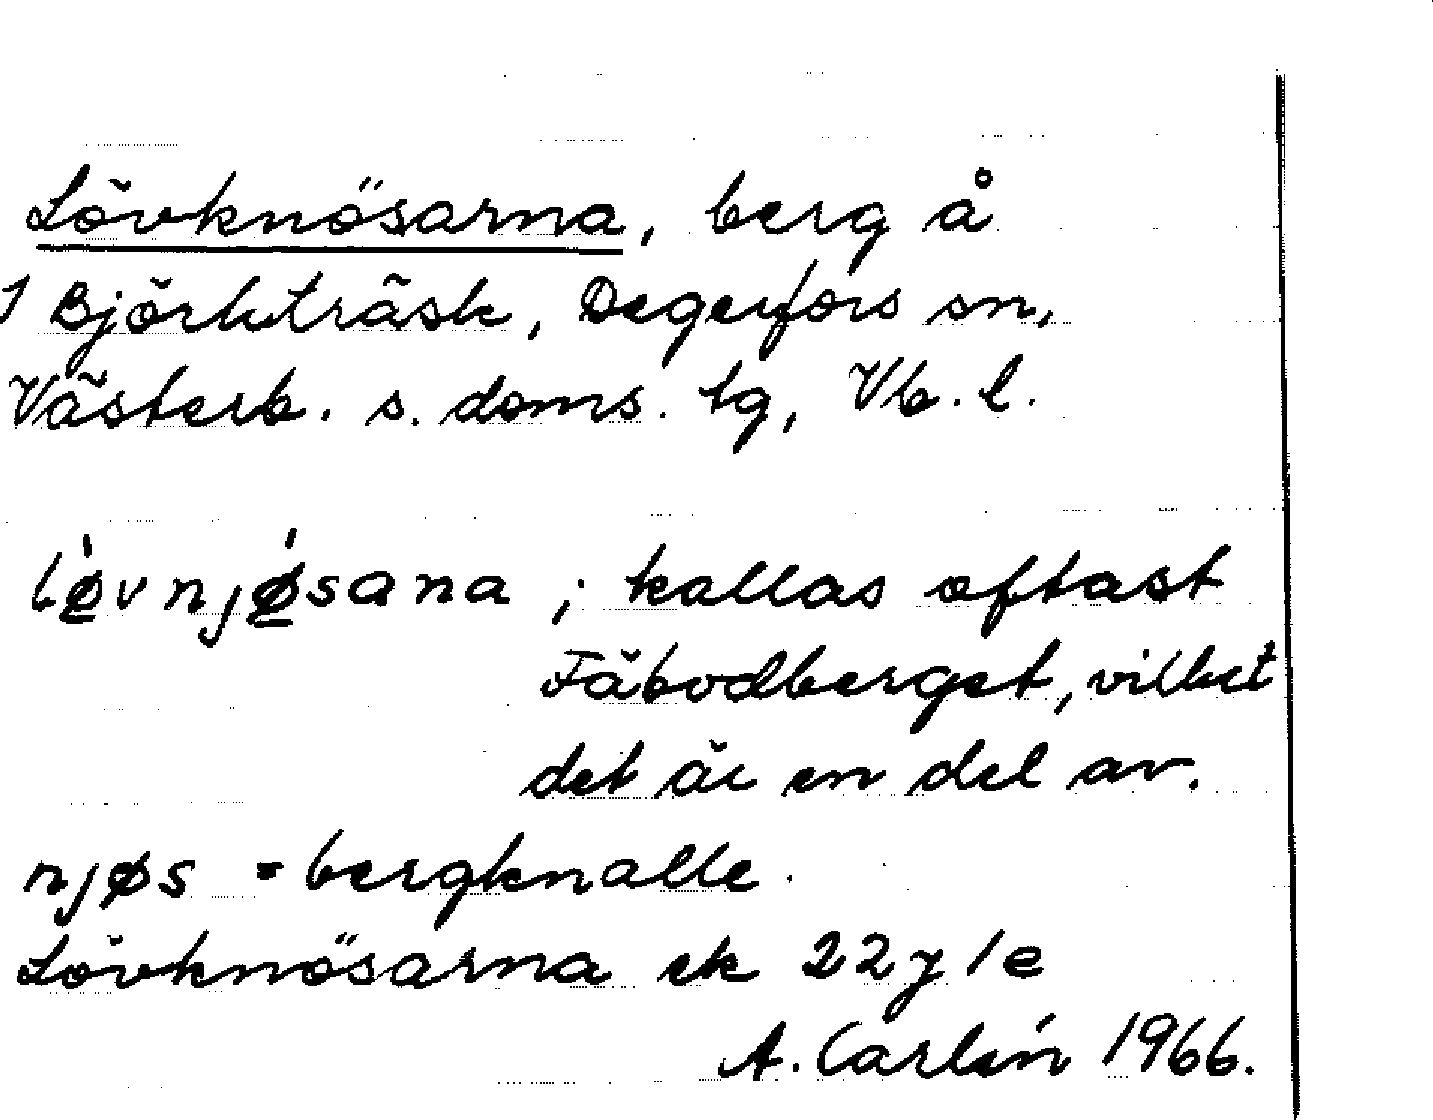 Lövknösarna, berg å
1 Björkträsk, Degerfors sn,
Västerb. s. doms. tg, Vb. l.
lǿ̲vnjǿ̲sana ; kallas oftast
Fäbodberget, vilket
det är en del av.
njøs = bergknalle.
Lövknösarna ek 22 y 1 e
A. Carlén 1966.